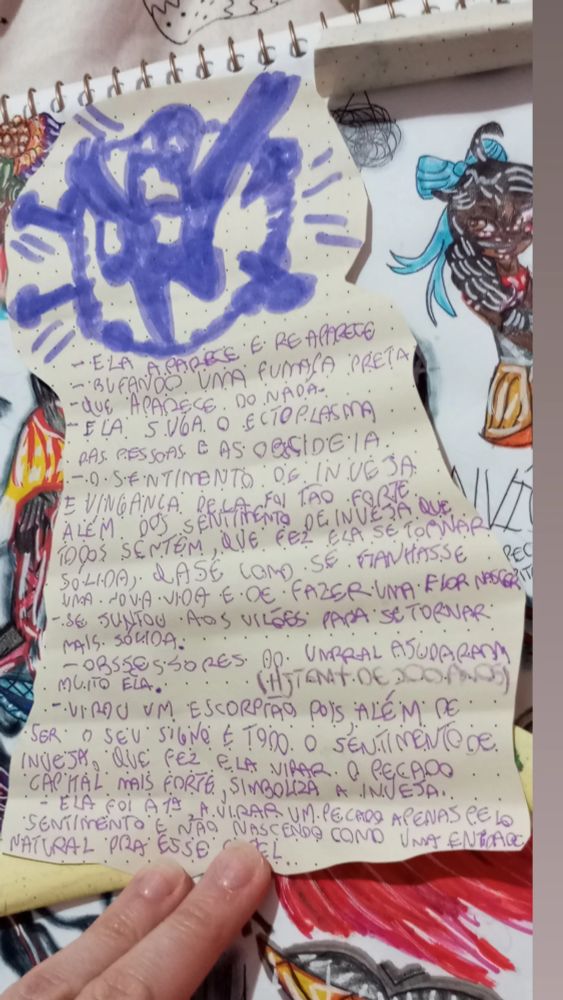 - ELA APARECE E REAPARECE
- BUFANDO UMA FUMAÇA PRETA
- QUE APARECE DO NADA.
- ELA SUGA O ECTOPLASMA
DAS PESSOAS E AS OBCIDEIA
- O SENTIMENTO DE INVEJA
E VINGANÇA DELA FOI TÃO FORTE
ALÉM DOS SENTIMENTO DE INVEJA QUE
TODOS SENTEM, QUE FEZ ELA SE TORNAR
SÓLIDA, QASE COMO SE GANHASSE
UMA NOVA VIDA E DE FAZER UMA FLOR NASCER
- SE JUNTOU AOS VILÕES PARA SE TORNAR
MAIS SÓLIDA.
- OBSSESSORES DO UMBRAL AJUDARAM
MUITO ELA. DE 300 ANOS)
- VIROU UM ESCORPIÃO POIS, ALÉM DE
SER O SEU SIGNO É TODO O SENTIMENTO DE
INVEJA, QUE FEZ ELA VIRAR O PECADO
CAPITAL MAIS FORTE, SIMBOLIZA A INVEJA.
- ELA FOI A 1ª A VIRAR UM PECADO APENAS PELO
SENTIMENTO E NÃO NASCENDO COMO UMA ENTIDADE
NATURAL PRA ESSE